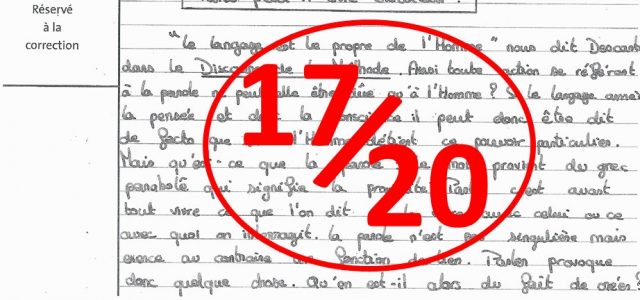 Réservé
à la
correction
"Le langage est le propre de l'Homme" nous dit Descart
dans le Discours de la Méthode. Ainsi toute action se référant
à la parole ne peut elle être qu'à l'Homme ? Si le langage amè
la pensée et donc la conscience il peut donc être dit
de facto que l'Homme détient ce pouvoir particulier.
Mais qu'est-ce que la parole mot provient du grec
parabolê qui signifie la Parler c'est avant
tout vivre ce que l'on dit avec celui ou ce
avec quoi on interragit. La parole n'est pas singulière mais
exerce au contraire une fonction de lien. Parler provoque
donc quelque chose. Qu'en est-il alors du fait de créer ?
17/20